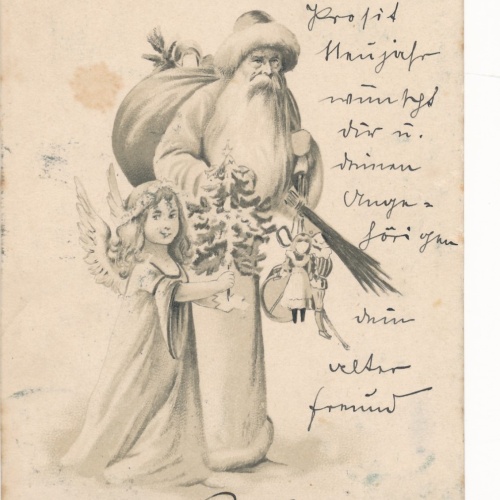 Prosit
Neujahr
wünscht
dir u.
deinen
Ange-
hörigen
dein
alter
freund